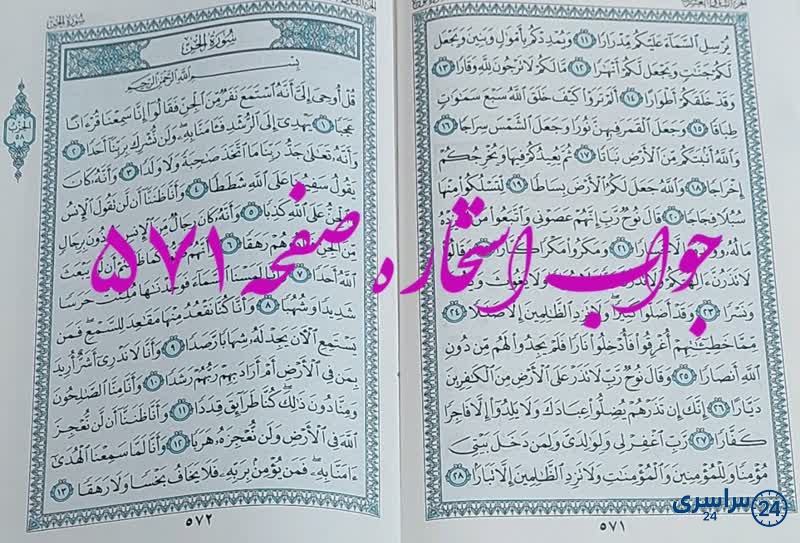 يُرْسِلِ السَّمَاءَ عَلَيْكُم مِّدْرَارًا ١١ وَيُمْدِدْكُم بِأَمْوَالٍ وَبَنِينَ وَيَجْعَل
لَّكُمْ جَنَّاتٍ وَيَجْعَل لَّكُمْ أَنْهَارًا ١٢ مَّا لَكُمْ لَا تَرْجُونَ لِلَّهِ وَقَارًا ١٣
وَقَدْ خَلَقَكُمْ أَطْوَارًا ١٤ أَلَمْ تَرَوْا كَيْفَ خَلَقَ اللَّهُ سَبْعَ سَمَاوَاتٍ
طِبَاقًا ١٥ وَجَعَلَ الْقَمَرَ فِيهِنَّ نُورًا وَجَعَلَ الشَّمْسَ سِرَاجًا ١٦
وَاللَّهُ أَنبَتَكُم مِّنَ الْأَرْضِ نَبَاتًا ١٧ ثُمَّ يُعِيدُكُمْ فِيهَا وَيُخْرِجُكُمْ
إِخْرَاجًا ١٨ وَاللَّهُ جَعَلَ لَكُمُ الْأَرْضَ بِسَاطًا ١٩ لِّتَسْلُكُوا مِنْهَا
سُبُلًا فِجَاجًا ٢٠ قَالَ نُوحٌ رَّبِّ إِنَّهُمْ عَصَوْنِي وَاتَّبَعُوا مَن
مَالُهُ ٢١ وَمَكَرُوا مَكْرًا
لَا تَذَرُنَّ وَلَا يَغُوثَ
وَنَسْرًا ٢٣ وَقَدْ أَضَلُّوا كَثِيرًا وَلَا تَزِدِ الظَّالِمِينَ إِلَّا ضَلَالًا ٢٤
مِّمَّا خَطِيئَاتِهِمْ أُغْرِقُوا فَأُدْخِلُوا نَارًا فَلَمْ يَجِدُوا لَهُم مِّن دُونِ
اللَّهِ أَنصَارًا ٢٥ وَقَالَ نُوحٌ رَّبِّ لَا تَذَرْ عَلَى الْأَرْضِ مِنَ الْكَافِرِينَ
دَيَّارًا ٢٦ إِنَّكَ إِن تَذَرْهُمْ يُضِلُّوا عِبَادَكَ وَلَا يَلِدُوا إِلَّا فَاجِرًا
كَفَّارًا ٢٧ رَّبِّ اغْفِرْ لِي وَلِوَالِدَيَّ وَلِمَن دَخَلَ بَيْتِيَ
مُؤْمِنًا وَلِلْمُؤْمِنِينَ وَالْمُؤْمِنَاتِ وَلَا تَزِدِ الظَّالِمِينَ إِلَّا تَبَارًا ٢٨
٥٧١
سُورَةُ الجِنّ
سُورَةُ الجِنّ
بِسْمِ اللَّهِ الرَّحْمَٰنِ الرَّحِيمِ
قُلْ أُوحِيَ إِلَيَّ أَنَّهُ اسْتَمَعَ نَفَرٌ مِّنَ الْجِنِّ فَقَالُوا إِنَّا سَمِعْنَا قُرْآنًا
عَجَبًا ١ يَهْدِي إِلَى الرُّشْدِ فَآمَنَّا بِهِ وَلَن نُّشْرِكَ بِرَبِّنَا أَحَدًا ٢
وَأَنَّهُ تَعَالَىٰ جَدُّ رَبِّنَا مَا اتَّخَذَ صَاحِبَةً وَلَا وَلَدًا ٣ وَأَنَّهُ كَانَ
يَقُولُ سَفِيهُنَا عَلَى اللَّهِ شَطَطًا ٤ وَأَنَّا ظَنَنَّا أَن لَّن تَقُولَ الْإِنسُ
وَالْجِنُّ عَلَى اللَّهِ كَذِبًا ٥ وَأَنَّهُ كَانَ رِجَالٌ مِّنَ الْإِنسِ يَعُوذُونَ بِرِجَالٍ
مِّنَ الْجِنِّ رَهَقًا ٦ وَأَنَّهُمْ ظَنُّوا يَبْعَثَ
اللَّهُ أَحَدًا ٧ وَأَنَّا لَمَسْنَا السَّمَاءَ فَوَجَدْنَاهَا مُلِئَتْ حَرَسًا
شَدِيدًا وَشُهُبًا ٨ وَأَنَّا كُنَّا نَقْعُدُ مِنْهَا مَقَاعِدَ لِلسَّمْعِ فَمَن
يَسْتَمِعِ الْآنَ يَجِدْ لَهُ شِهَابًا رَّصَدًا ٩ وَأَنَّا لَا نَدْرِي أَشَرٌّ أُرِيدَ
بِمَن فِي الْأَرْضِ أَمْ أَرَادَ بِهِمْ رَبُّهُمْ رَشَدًا ١٠ وَأَنَّا مِنَّا الصَّالِحُونَ
وَمِنَّا دُونَ ذَٰلِكَ كُنَّا طَرَائِقَ قِدَدًا ١١ وَأَنَّا ظَنَنَّا أَن لَّن نُّعْجِزَ
اللَّهَ فِي الْأَرْضِ وَلَن نُّعْجِزَهُ هَرَبًا ١٢ وَأَنَّا لَمَّا سَمِعْنَا الْهُدَىٰ
آمَنَّا بِهِ فَمَن يُؤْمِن بِرَبِّهِ فَلَا يَخَافُ بَخْسًا وَلَا رَهَقًا ١٣
٥٧٢
الحزب
٥٨
جواب استخاره صفحه ۵۷۱
سراسری 24
24